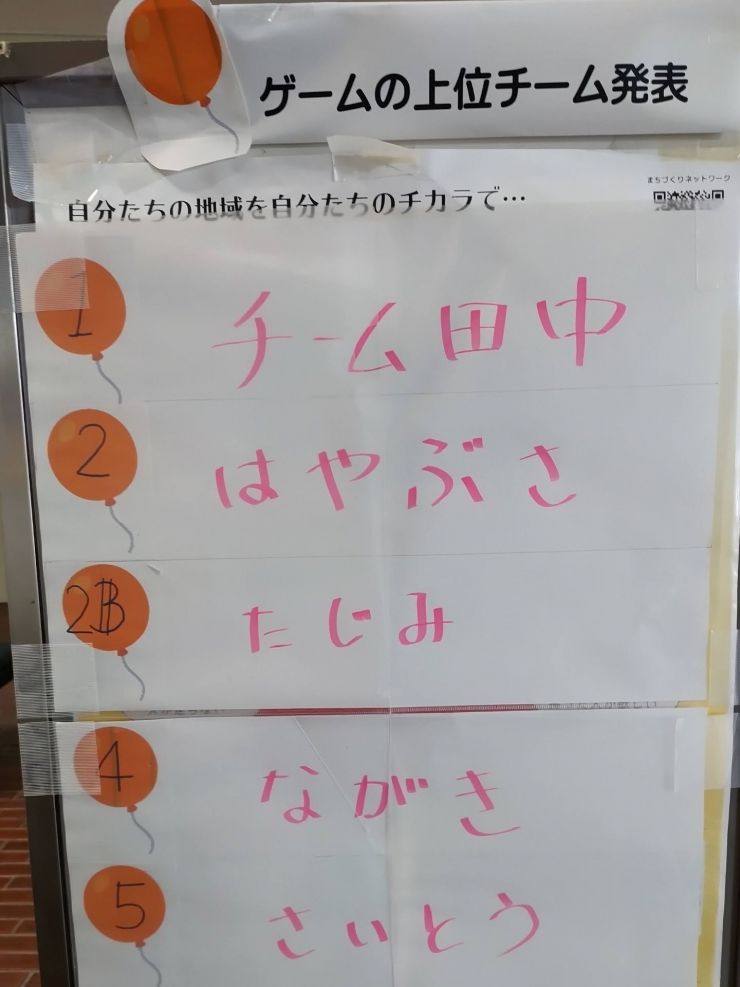 ゲームの上位チーム発表
まちづくりネットワーク
自分たちの地域を自分たちのチカラで…
1 チーム田中
2 はやぶさ
2 たじみ
4 ながき
5 さいとう